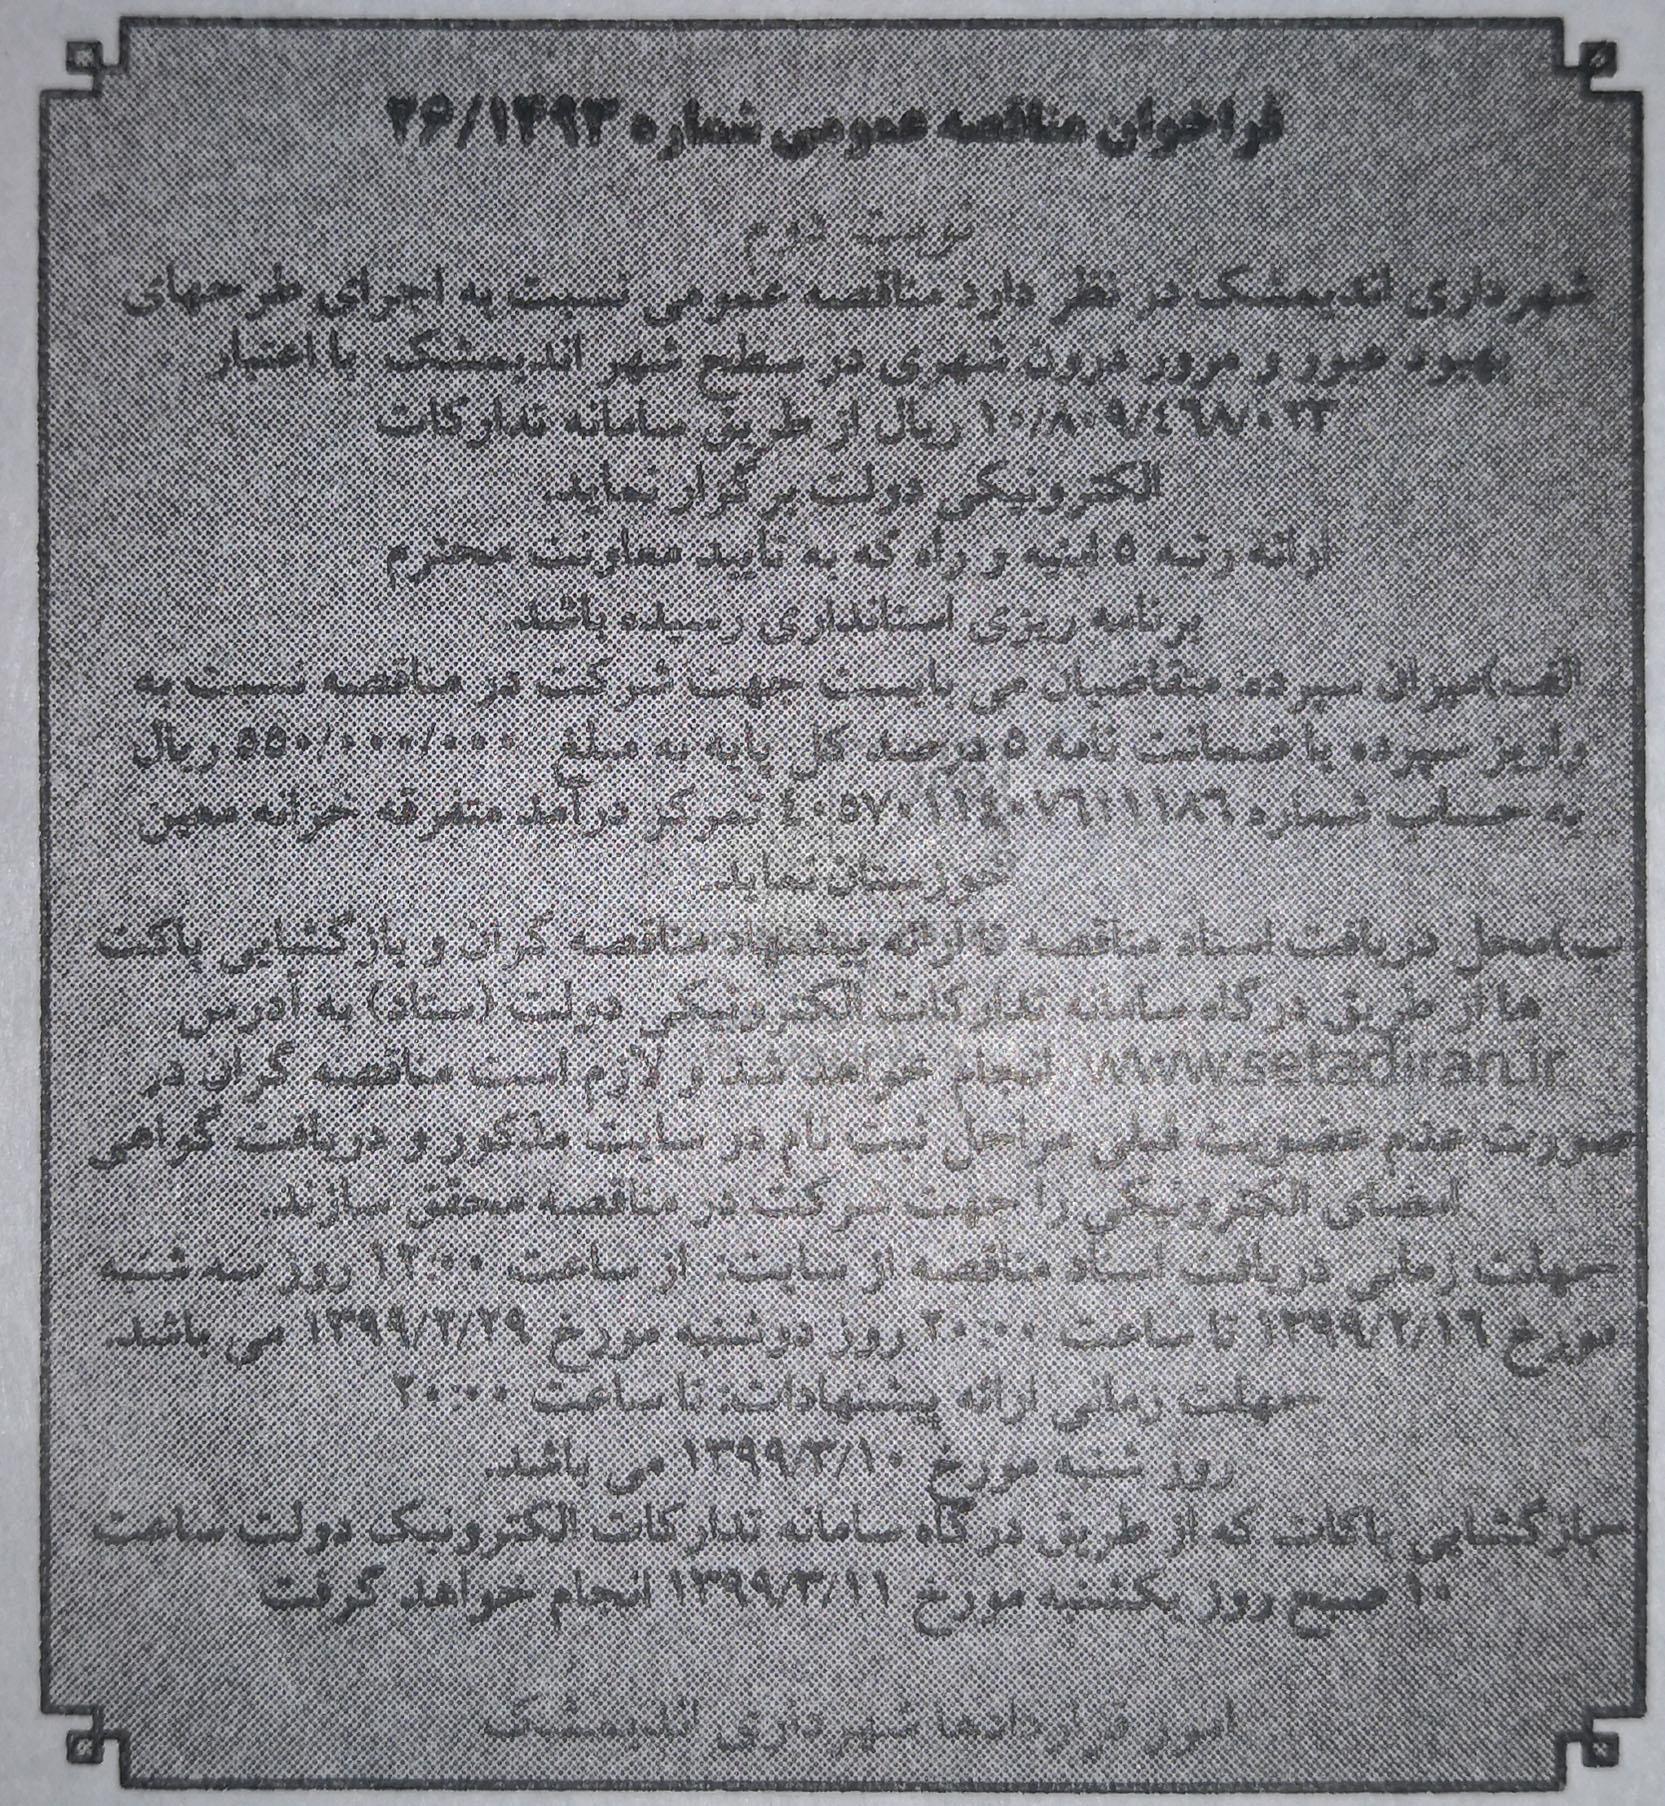 فراخوان مناقصه عمومی شماره ۲۶/۱۴۹۳
نوبت دوم
شهرداری اندیمشک در نظر دارد مناقصه عمومی نسبت به اجرای طرحهای
بهبود عبور و مرور درون شهری در سطح شهر اندیمشک با اعتبار
۱۰/۸۰۹/۴۶۸/۰۲۳ ریال از طریق سامانه تدارکات
الکترونیکی دولت برگزار نماید.
ارائه رتبه ۵ ابنیه و راه که به تایید معاونت محترم
برنامه ریزی استانداری رسیده باشد.
الف)میزان سپرده: متقاضیان می بایست جهت شرکت در مناقصه نسبت به
واریز سپرده یا ضمانت نامه ۵ درصد کل پایه به مبلغ ۵۵۰/۰۰۰/۰۰۰ ریال
به حساب شماره تمرکز درآمد متفرقه خزانه معین
خوزستان نماید.
ب)محل دریافت اسناد مناقصه تا ارائه پیشنهاد مناقصه گران و بازگشایی پاکت
ها از طریق درگاه سامانه تدارکات الکترونیکی دولت (ستاد) به آدرس
www.setadiran.ir انجام خواهد شد و لازم است مناقصه گران در
صورت عدم عضویت قبلی مراحل ثبت نام در سایت مذکور و دریافت گواهی
امضای الکترونیکی را جهت شرکت در مناقصه محقق سازند.
-مهلت زمانی دریافت اسناد مناقصه از سایت: از ساعت روز سه شنبه
مورخ ۱۳۹۹/۲/۱۶ تا ساعت ۲۰:۰۰ روز دوشنبه مورخ ۱۳۹۹/۲/۲۹ می باشد.
-مهلت زمانی ارائه پیشنهادات: تا ساعت ۲۰:۰۰
روز شنبه مورخ ۱۳۹۹/۳/۱۰ می باشد.
-بازگشایی پاکات که از طریق درگاه سامانه تدارکات الکترونیک دولت ساعت
۱۰ صبح روز یکشنبه مورخ ۱۳۹۹/۳/۱۱ انجام خواهد گرفت
امور قراردادها شهرداری اندیمشک